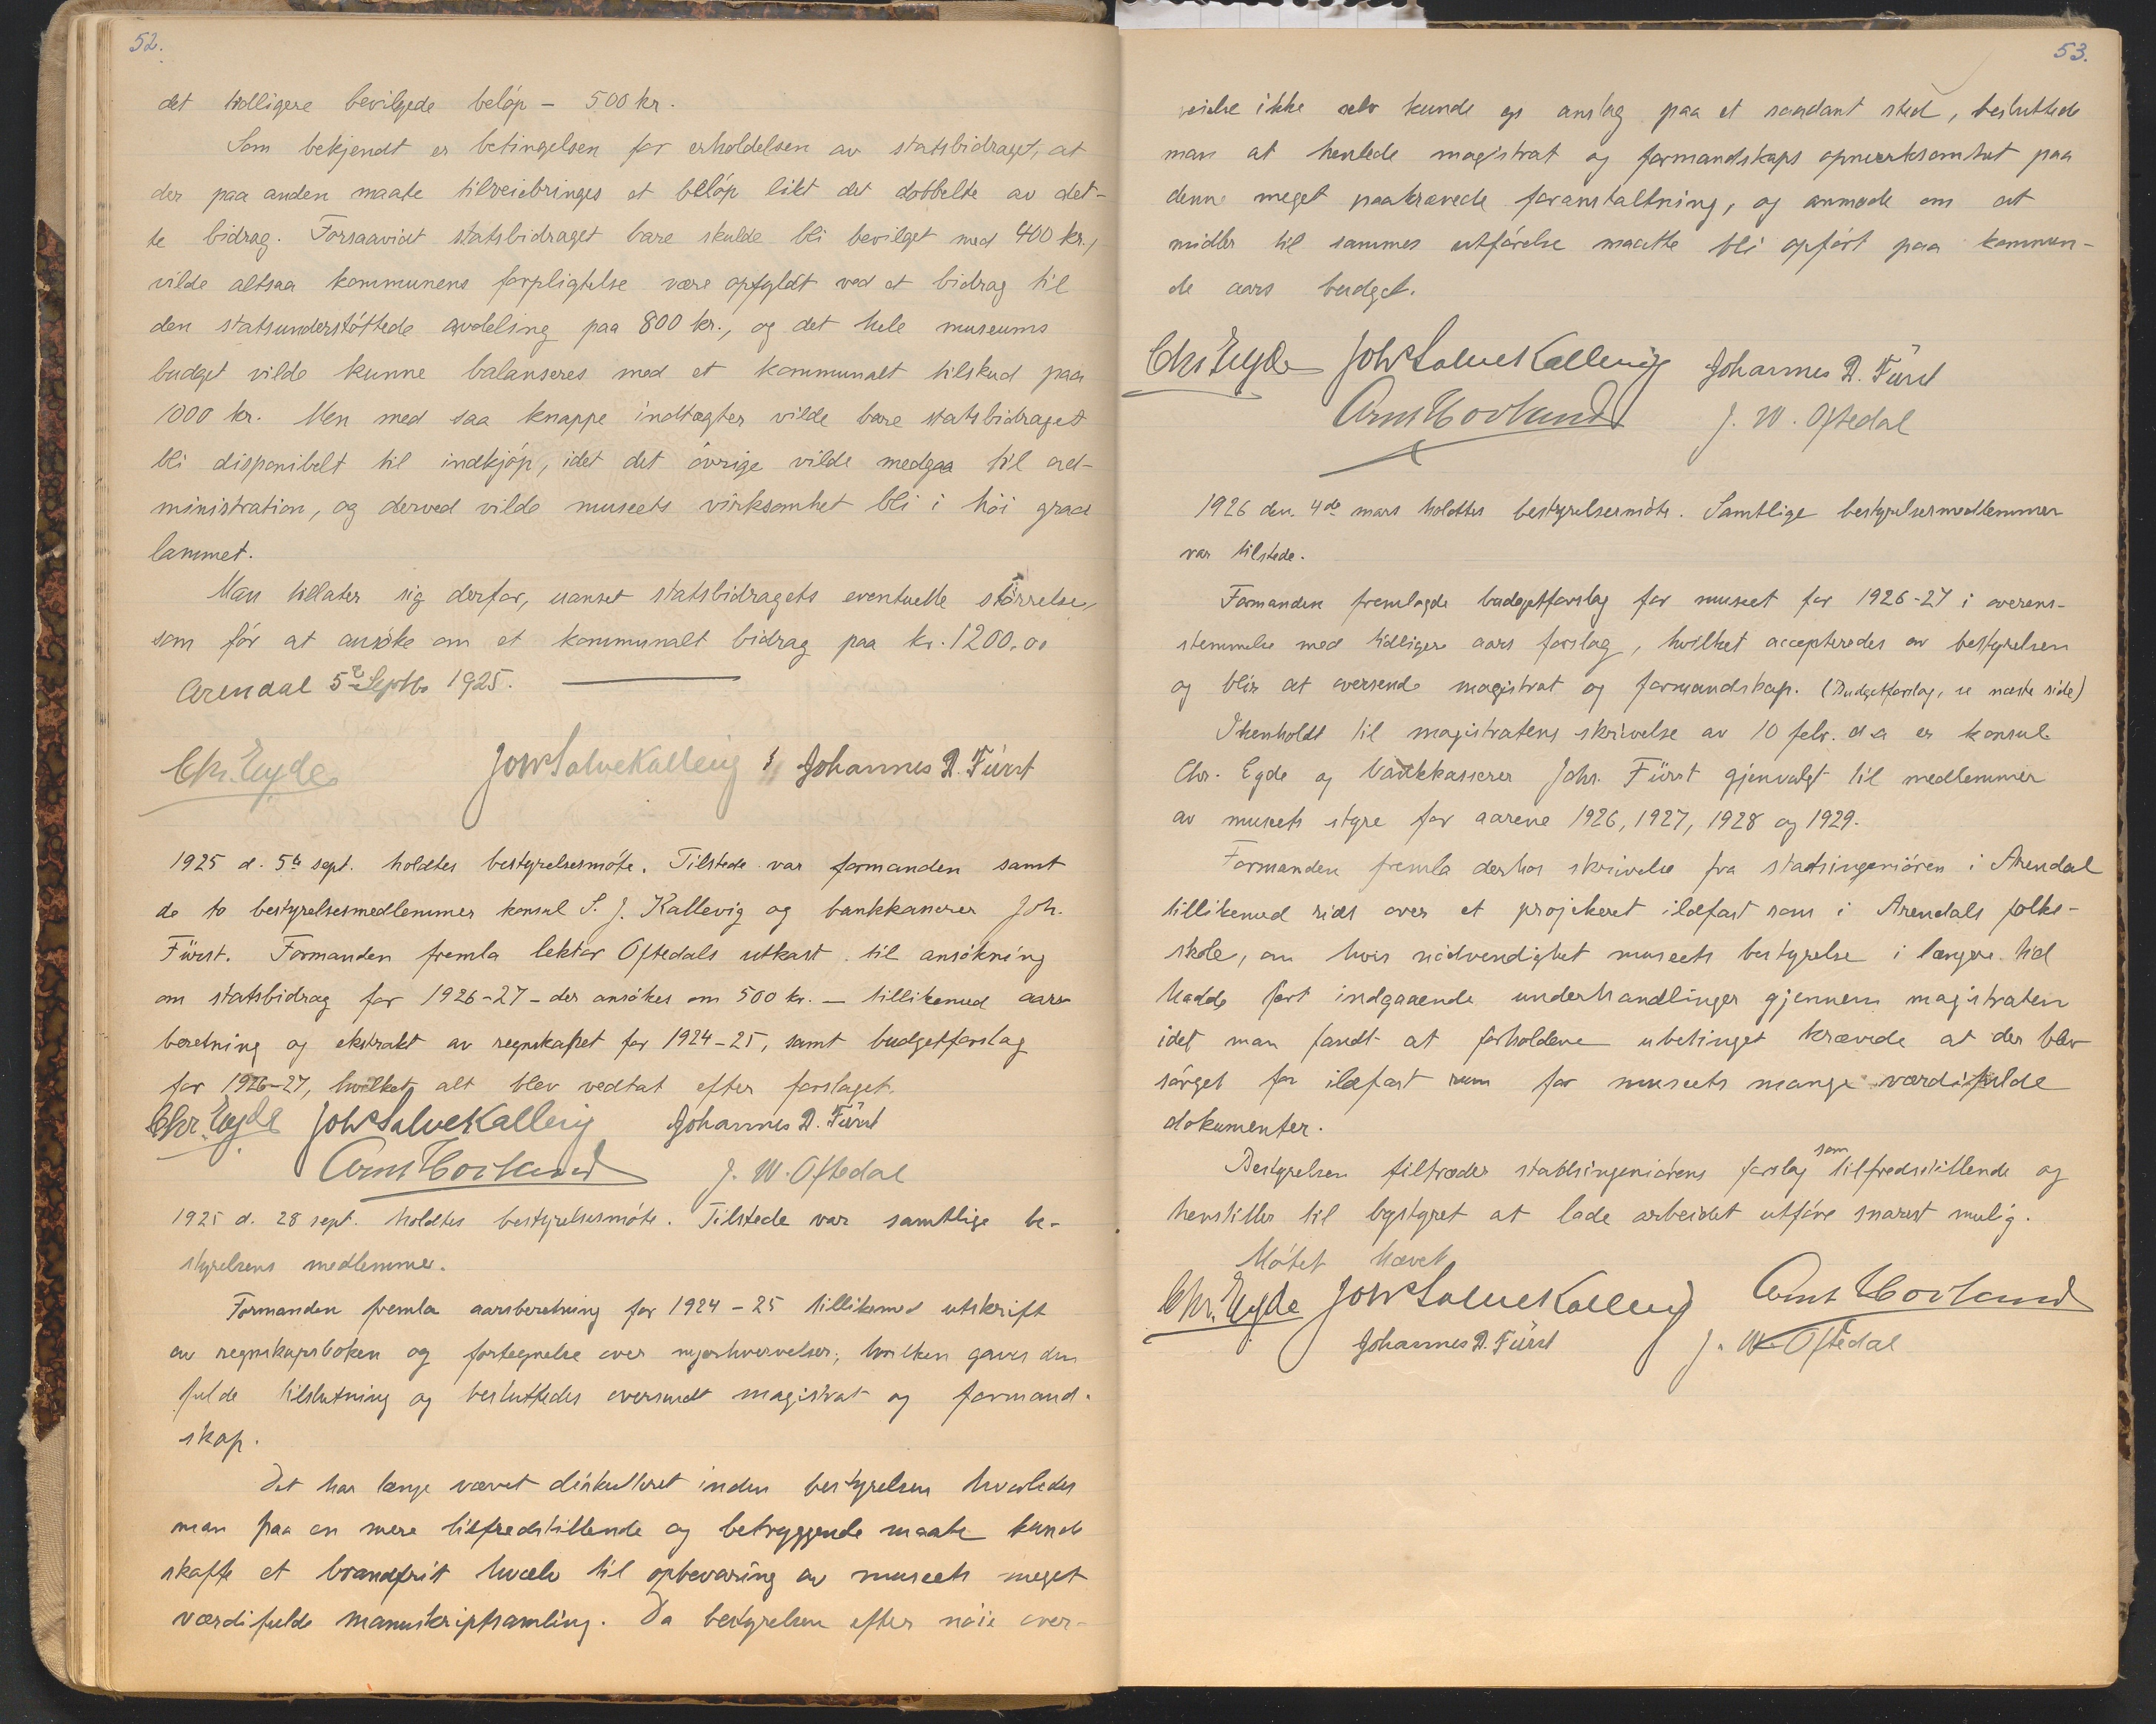 52.
det tidligere bevilgede beløp - 500 kr.
Som bekjendt er betingelsen for erholdelsen av statsbidraget, at
der paa anden maate tilveiebringes et beløp likt det dobbelte av det-
te bidrag. Forsaavidt statsbidraget bare skulde bli bevilget med 400 kr.,
vilde altsaa kommunens forpligtelse være opfyldt ved et bidrag til
den statsunderstøttede avdeling paa 800 kr., og det hele museums
budget vilde kunne balanseres med et kommunalt tilskud paa
1000 kr. Men med saa knappe indtægter vilde bare statsbidraget
bli disponibelt til indkjøp, idet det øvrige vilde medgaa til ad-
ministration, og derved vilde museets virksomhet bli i høi grad
lammet.
Man tillater sig derfor, uanset statsbidragets eventuelle størrelse,
som før at ansøke om et kommunalt bidrag paa kr. 1200.00
Arendal 5 Septbr 1925.
Chr. Eyde Joh Salve Kallevig Johannes D. Fürst
1925 d. 5te sept. holdtes bestyrelsesmøte. Tilstede var formanden samt
de to bestyrelsesmedlemmer konsul S. J. Kallevig og bankkasserer Joh.
Fürst. Formanden fremla lektor Oftedals utkast til ansøkning
om statsbidrag for 1926-27 - der ansøkes om 500 kr. - tillikemed aars-
beretning og ekstrakt av regnskapet for 1924-25, samt budgetforslag
for 1926-27, hvilket alt blev vedtat efter forslaget.
Chr. Eyde Joh Salve Kallevig Johannes D. Fürst
Arnt Hovland J. W. Oftedal
1925 d. 28 sept. holdtes bestyrelsesmøte. Tilstede var samtlige be-
styrelsens medlemmer.
Formanden fremla aarsberetning for 1924-25 tillikemed utskrift
av regnskapsboken og fortegnelse over nyerhvervelser, hvilken gaves den
fulde tilslutning og besluttedes oversendt magistrat og formand-
skap.
Det har længe været diskuteret inden bestyrelsen hvorledes
man paa en mere tilfredstillende og betryggende maate kunde
skaffe et brandfrit hvælv til opbevaring av museets meget
værdifulde manuskriptsamling. Da bestyrelsen efter nøie over-
53.
veielse ikke selv kunde gi anslag paa et saadant sted, besluttede
man at henlede magistrat og formandskaps opmerksomhet paa
denne meget paakrævede foranstaltning, og anmode om at
midler til sammes utførelse maatte bli opført paa kommen-
de aars budget.
Chr Eyde Joh Salve Kallevig Johannes D. Fürst
Arnt Hovland J. W. Oftedal
1926 den 4de mars holdtes bestyrelsesmøte. Samtlige bestyrelsesmedlemmer
var tilstede.
Formanden fremlagde budgetforslag for museet for 1926-27 i overens-
stemmelse med tidligere aars forslag, hvilket accepteredes av bestyrelsen
og blir at oversende magistrat og formandskap. (Budgetforslag, se næste side)
I henholdt til magistratens skrivelse av 10 febr. d.a er konsul
Chr. Eyde og bankkasserer Johs. Fürst gjenvalgt til medlemmer
av museets styre for aarene 1926, 1927, 1928 og 1929.
Formanden fremla derhos skrivelse fra stadsingeniøren i Arendal
tillikemed rids over et projekeret ildfast rum i Arendals folke-
skole, om hvis nødvendighet museets bestyrelse i længere tid
hadde ført indgaaende underhandlinger gjennem magistraten
idet man fandt at forholdene ubetinget krævede at der blev
sørget for ildfast rum for museets mange værdifulde
dokumenter.
Bestyrelsen tiltræder stadsingeniørens forslag som tilfredsstillende og
henstiller til bystyret at lade arbeidet utføre snarest mulig.
Møtet hævet
Chr. Eyde Joh Salve Kallevig Arnt Hovland
Johannes D. Fürst J. W. Oftedal